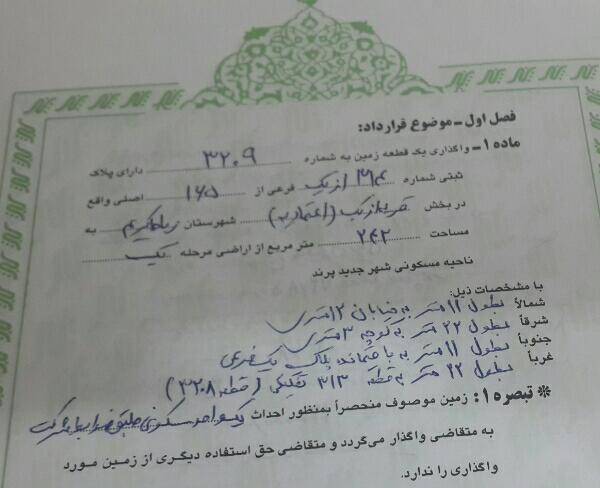 فصل اول ـ موضوع قرارداد:
ماده ۱ ـ واگذاری یک قطعه زمین به شماره ۳۲۰۹ دارای پلاک
ثبتی شماره ۳۱۴ از یک فرعی از ۱۶۵ اصلی واقع
در بخش قریه ازبک (اعتمادیه) شهرستان رباط کریم به
مساحت ۲۴۲ متر مربع از اراضی مرحله یک
ناحیه مسکونی شهر جدید پرند
با مشخصات ذیل:
شمالاً بطول ۱۱ متر به خیابان ۱۲ متری
شرقاً بطول ۲۲ متر به کوچه ۳ متری
جنوباً بطول ۱۱ متر به باقیمانده پلاک یک فرعی
غرباً بطول ۲۲ متر به قطعه ۳۱۳ تفکیکی (قطعه ۳۲۰۸)
* تبصره ۱: زمین موصوف منحصراً بمنظور احداث یک واحد مسکونی طبق ضوابط شرکت
به متقاضی واگذار می‌گردد و متقاضی حق استفاده دیگری از زمین مورد
واگذاری را ندارد.